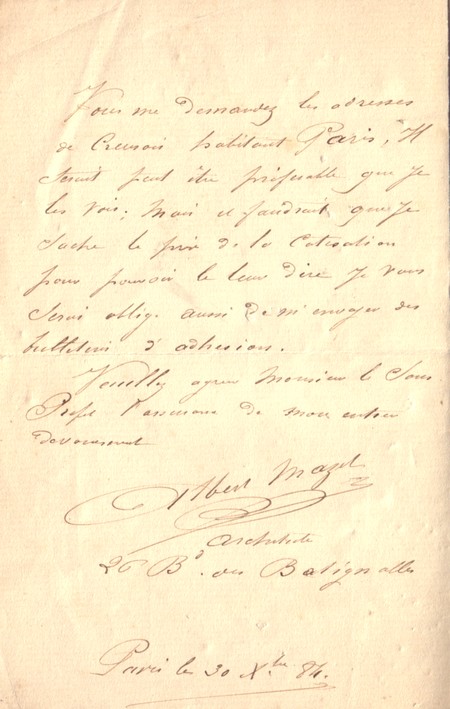 Vous me demandez les adresses
de Creusois habitant Paris, Il
serait peut être préférable que je
les vois; mais il faudrait que je
sache le prix de la Cotisation
pour pouvoir le leur dire je vous
serai oblig. aussi de m'envoyer des
bulletins d'adhésion.
Veuillez agréer Monsieur le Sous
Prefet l'assurance de mon entier
devouement
Albert Mazet
architecte
26 Bd. des Batignolles
Paris le 30 Xbre 84.